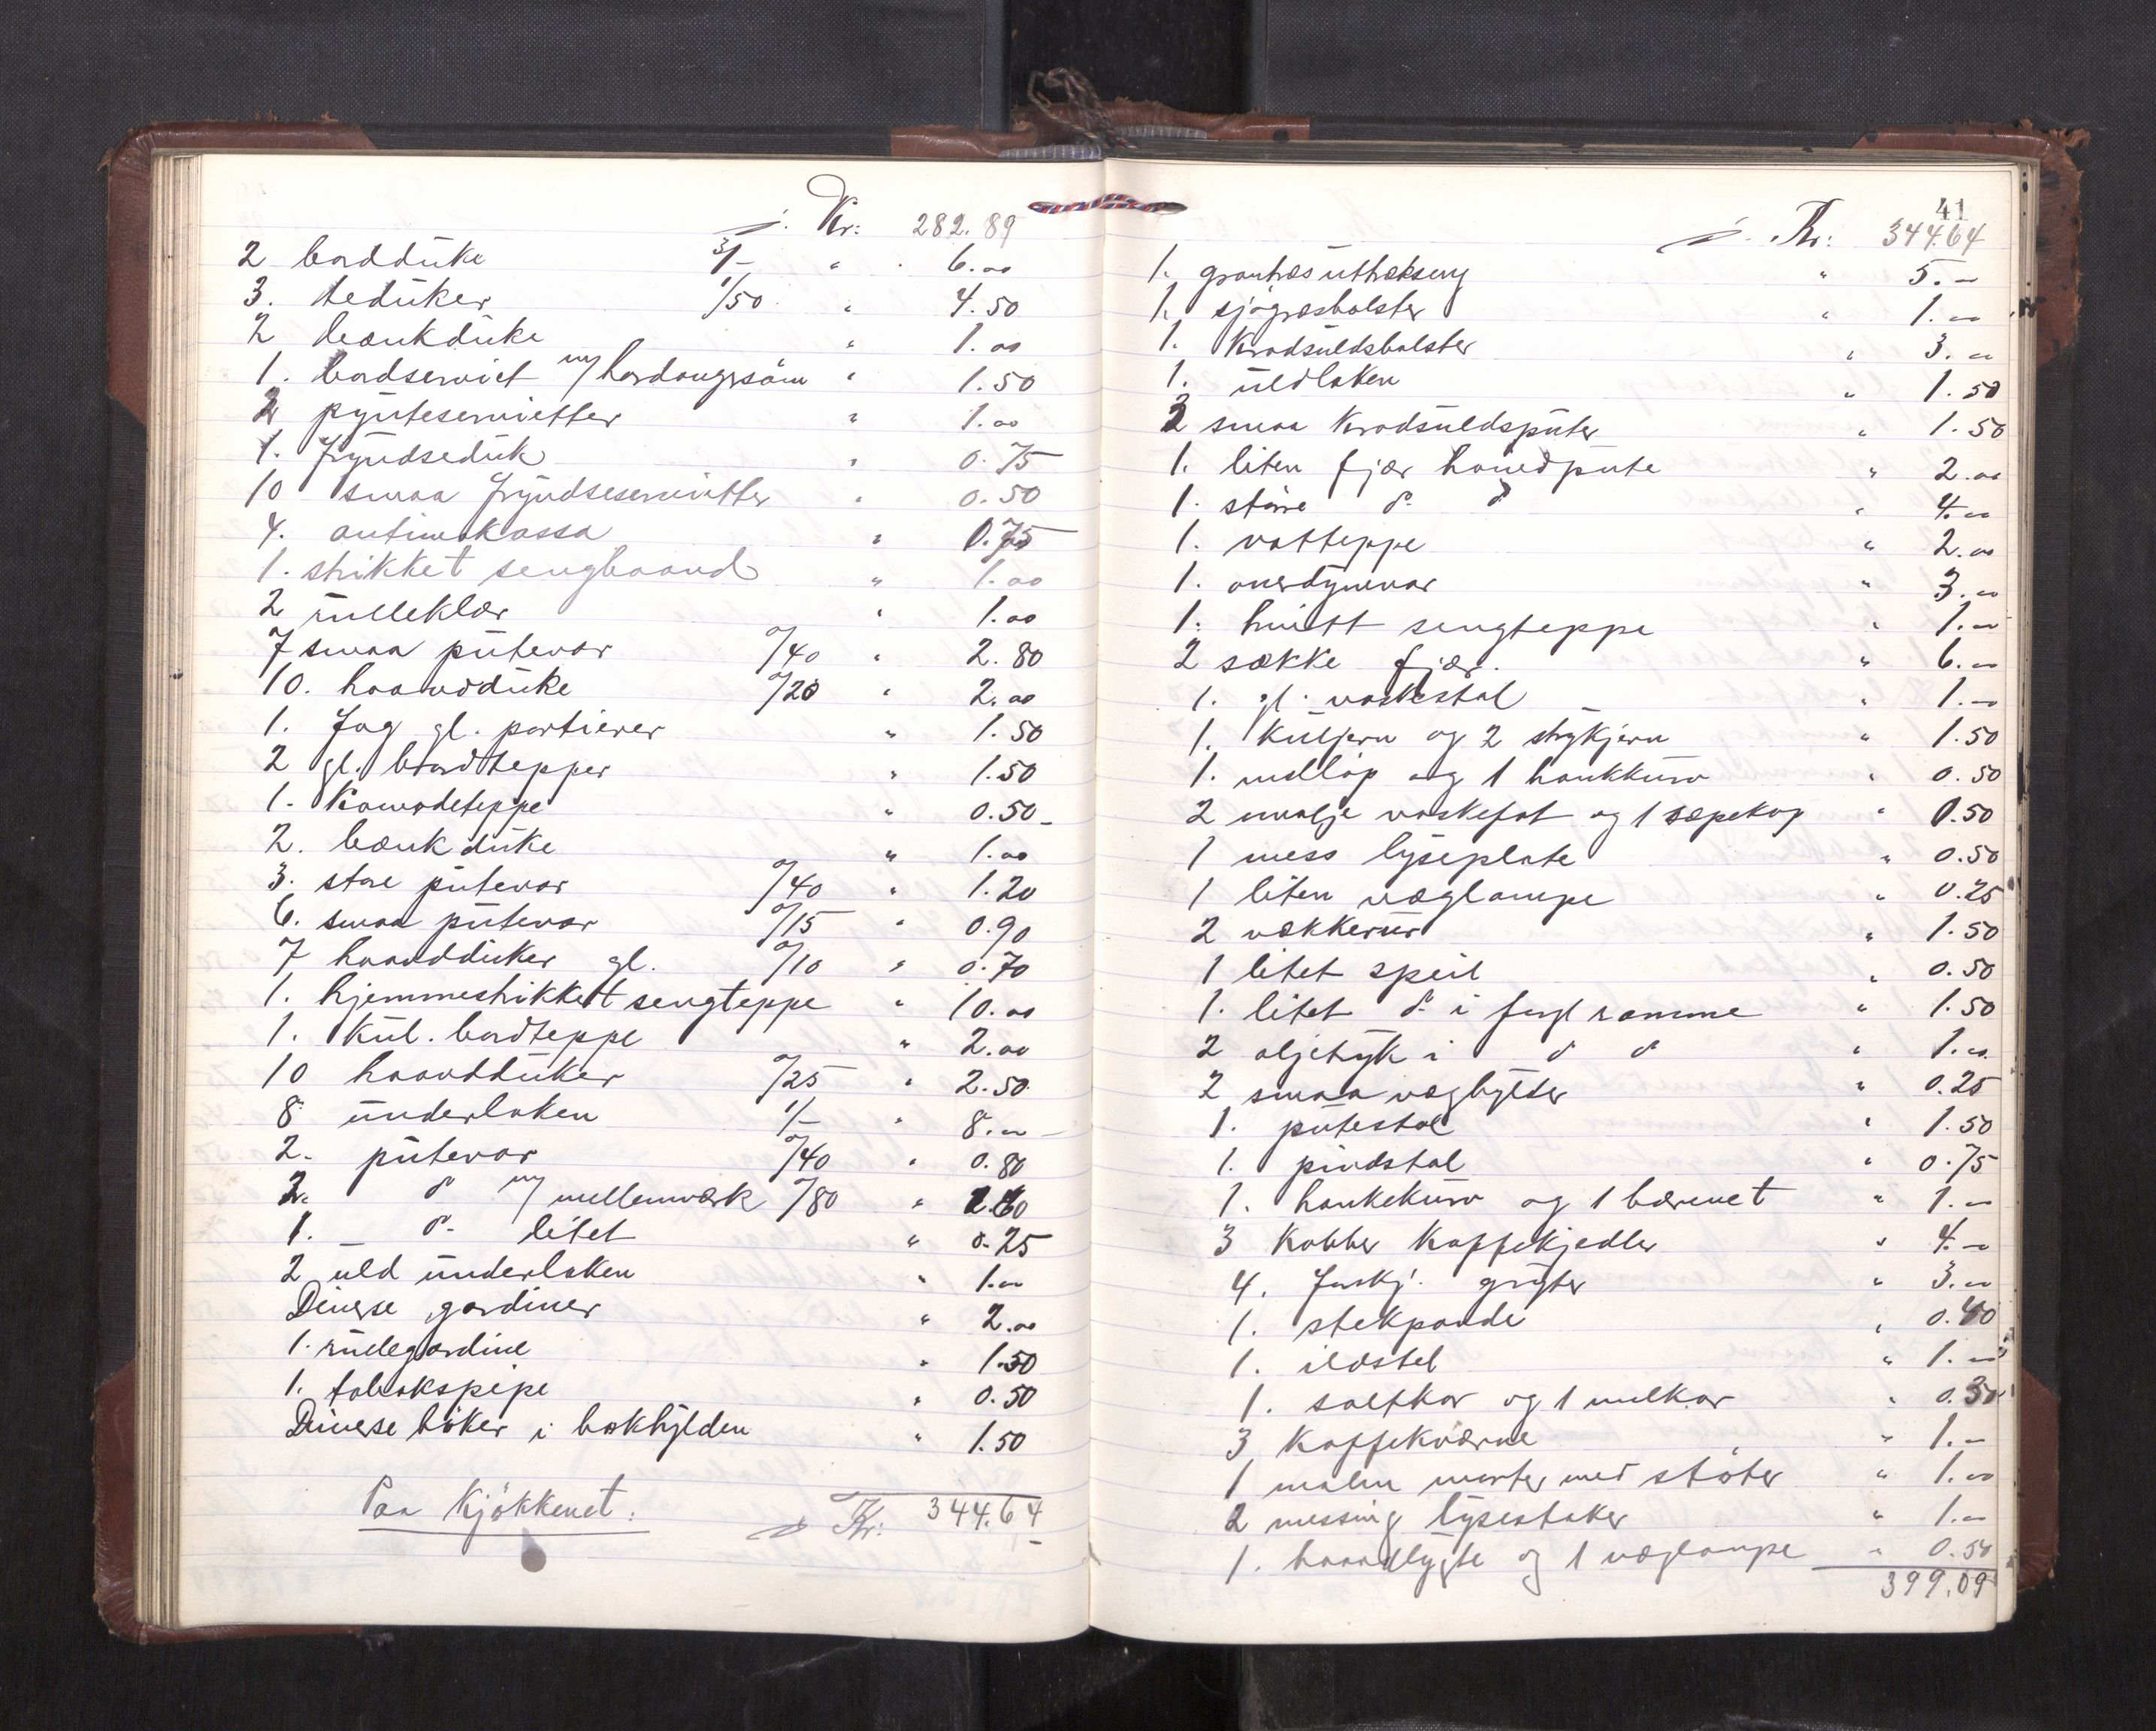 Kr: 282.89
2 bordduke 3/- " 6.00
3. teduker 1/50 " 4.50
2 bænkduke " 1.00
1. bordserviet m/ hardangersöm " 1.50
2 pynteservietter " 1.00
1. frynseduk " 0.75
10 smaa frynseservietter " 0.50
4. antimakassa " 0.75
1. strikket sengbaand " 1.00
2 rulleklær " 1.00
7 smaa putevar 0/40 " 2.80
10. haandduke 0/20 " 2.00
1. Fag gl. portierer " 1.50
2 gl. bordtepper " 1.50
1. Komodeteppe " 0.50
2. bænkduke " 1.00
3. store putevar 0/40 " 1.20
6. smaa putevar 0/15 " 0.90
7 haandduker gl. 0/10 " 0.70
1. hjemmestrikket sengteppe " 10.00
1. Kul. bordteppe " 2.00
10 haandduker 0/25 " 2.50
8 underlaken 1/- " 8.00
2. putevar 0/40 " 0.80
2. do m/ mellemværk 0/80 " 1.60
1. do litet " 0.25
2 uld underlaken " 1.00
Diverse gardiner " 2.00
1. rullegardine " 1.50
1. tobakspipe " 0.50
Diverse böker i bokhylden " 1.50
Paa Kjökkenet:
Kr: 344.64
41
Kr: 344.64
1. " 5.-
1. sjögræsbolster " 1.00
1. Kradsuldsbolster " 3.00
1. uldlaken " 1.50
3 smaa Kradsuldsputer " 1.50
1. liten fjær hovedpute " 2.00
1. större do do " 4.00
1. vatteppe " 2.00
1. overdynevar " 3.00
1. hvitt sengteppe " 1.00
2 sække fjær. " 6.00
1. gl. vaskestol " 1.00
1. Kuljern og 2 strykjern " 1.50
1. melløp og 1 hankkurv " 0.50
2 emalje vaskefat og 1 sæpekop " 0.50
1 mess lyseplate " 0.50
1 liten væglampe " 0.25
2 vækkerur " 1.50
1 litet speil " 0.50
1. litet do i forgl ramme " 1.50
2 oljetryk i do do " 1.00
2 smaa væghylder " 0.25
1. putestol " 1.50
1. pindstol " 0.75
1. hankekurv og 1 bærenet " 1.00
3 Kobber Kaffekjedler " 4.00
4. Forskj. gryter " 3.00
1. stekpande " 0.40
1. ildstel " 1.00
1. saltkar og 1 melkar " 0.30
3 Kaffekværne " 1.-
1 malm morter med stöter " 1.00
2 messing lysestaker " 1.00
1. haandlygte og 1 væglampe " 0.50
399.09